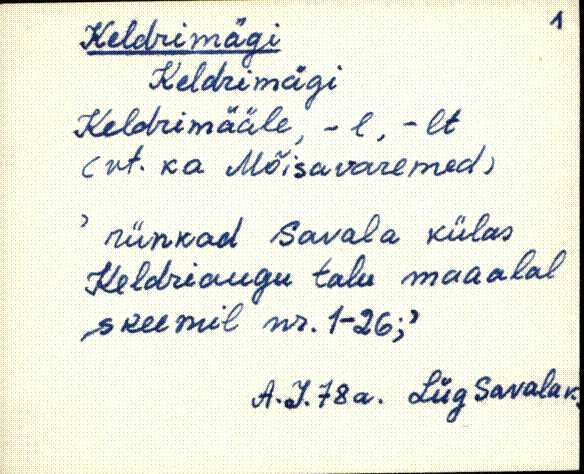 1
Keldrimägi
Keldrimägi
Keldrimääle, -l, -lt
(vt. ka Mõisavaremed)
' rünkad Savala külas
Keldriaugu talu maaalal
skeemil nr. 1-26;'
A.J.78a. Lüg Savala k.